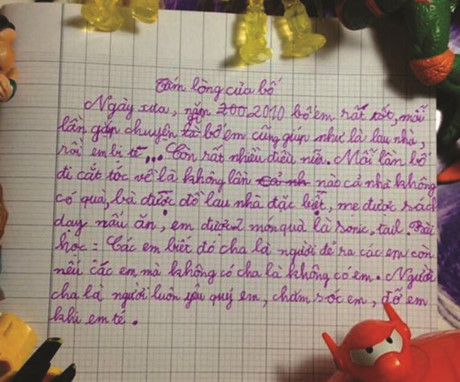 Tấm lòng của bố
Ngày xưa, năm 200 2010 bố em rất tốt, mỗi
lần gặp chuyện là bố em cũng giúp như là lau nhà,
rồi em bị tê,... Còn rất nhiều điều nữa. Mỗi lần bố
đi cắt tóc về là không lần cả nh nào cả nhà không
có quà, bà được đồ lau nhà đặc biệt, mẹ được sách
dạy nấu ăn, em được 2 món quà là Sonic, tail. Bài
học: Các em biết đó cha là người đẻ ra các em còn
nếu các em mà không có cha là không có em. Người
cha là người luôn yêu quý em, chăm sóc em, đỡ em
khi em té.